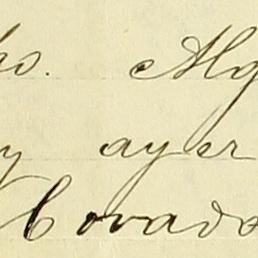 ho. Alg
y ayer
Covado